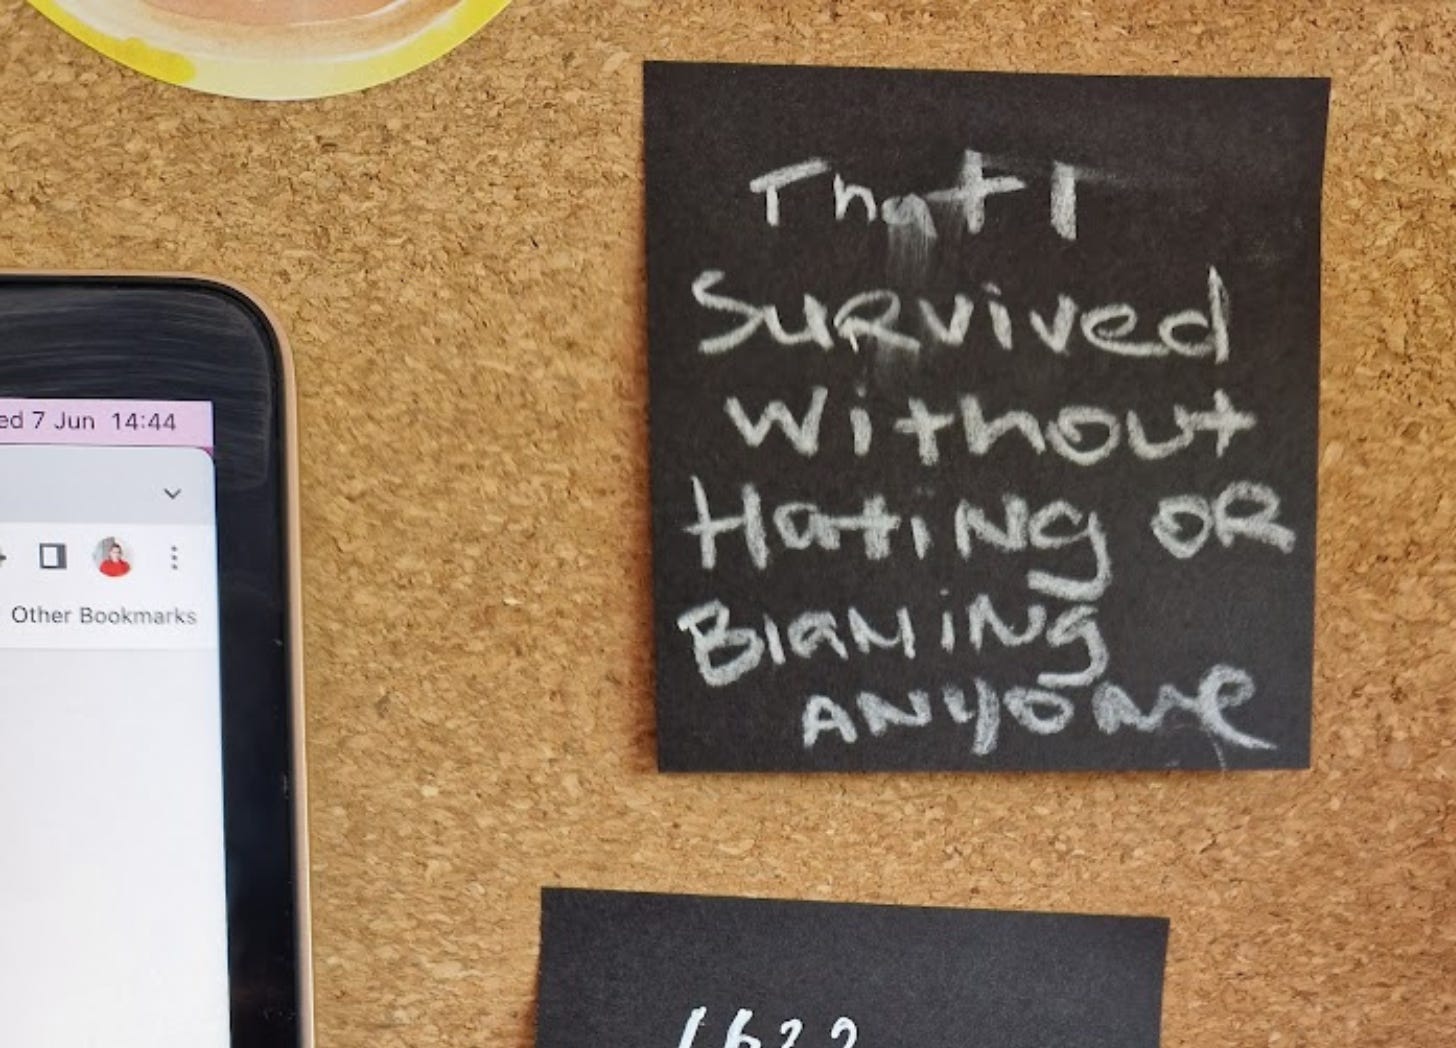 That I
Survived
without
Hating OR
Blaming
anyone
ed 7 Jun 14:44
Other Bookmarks